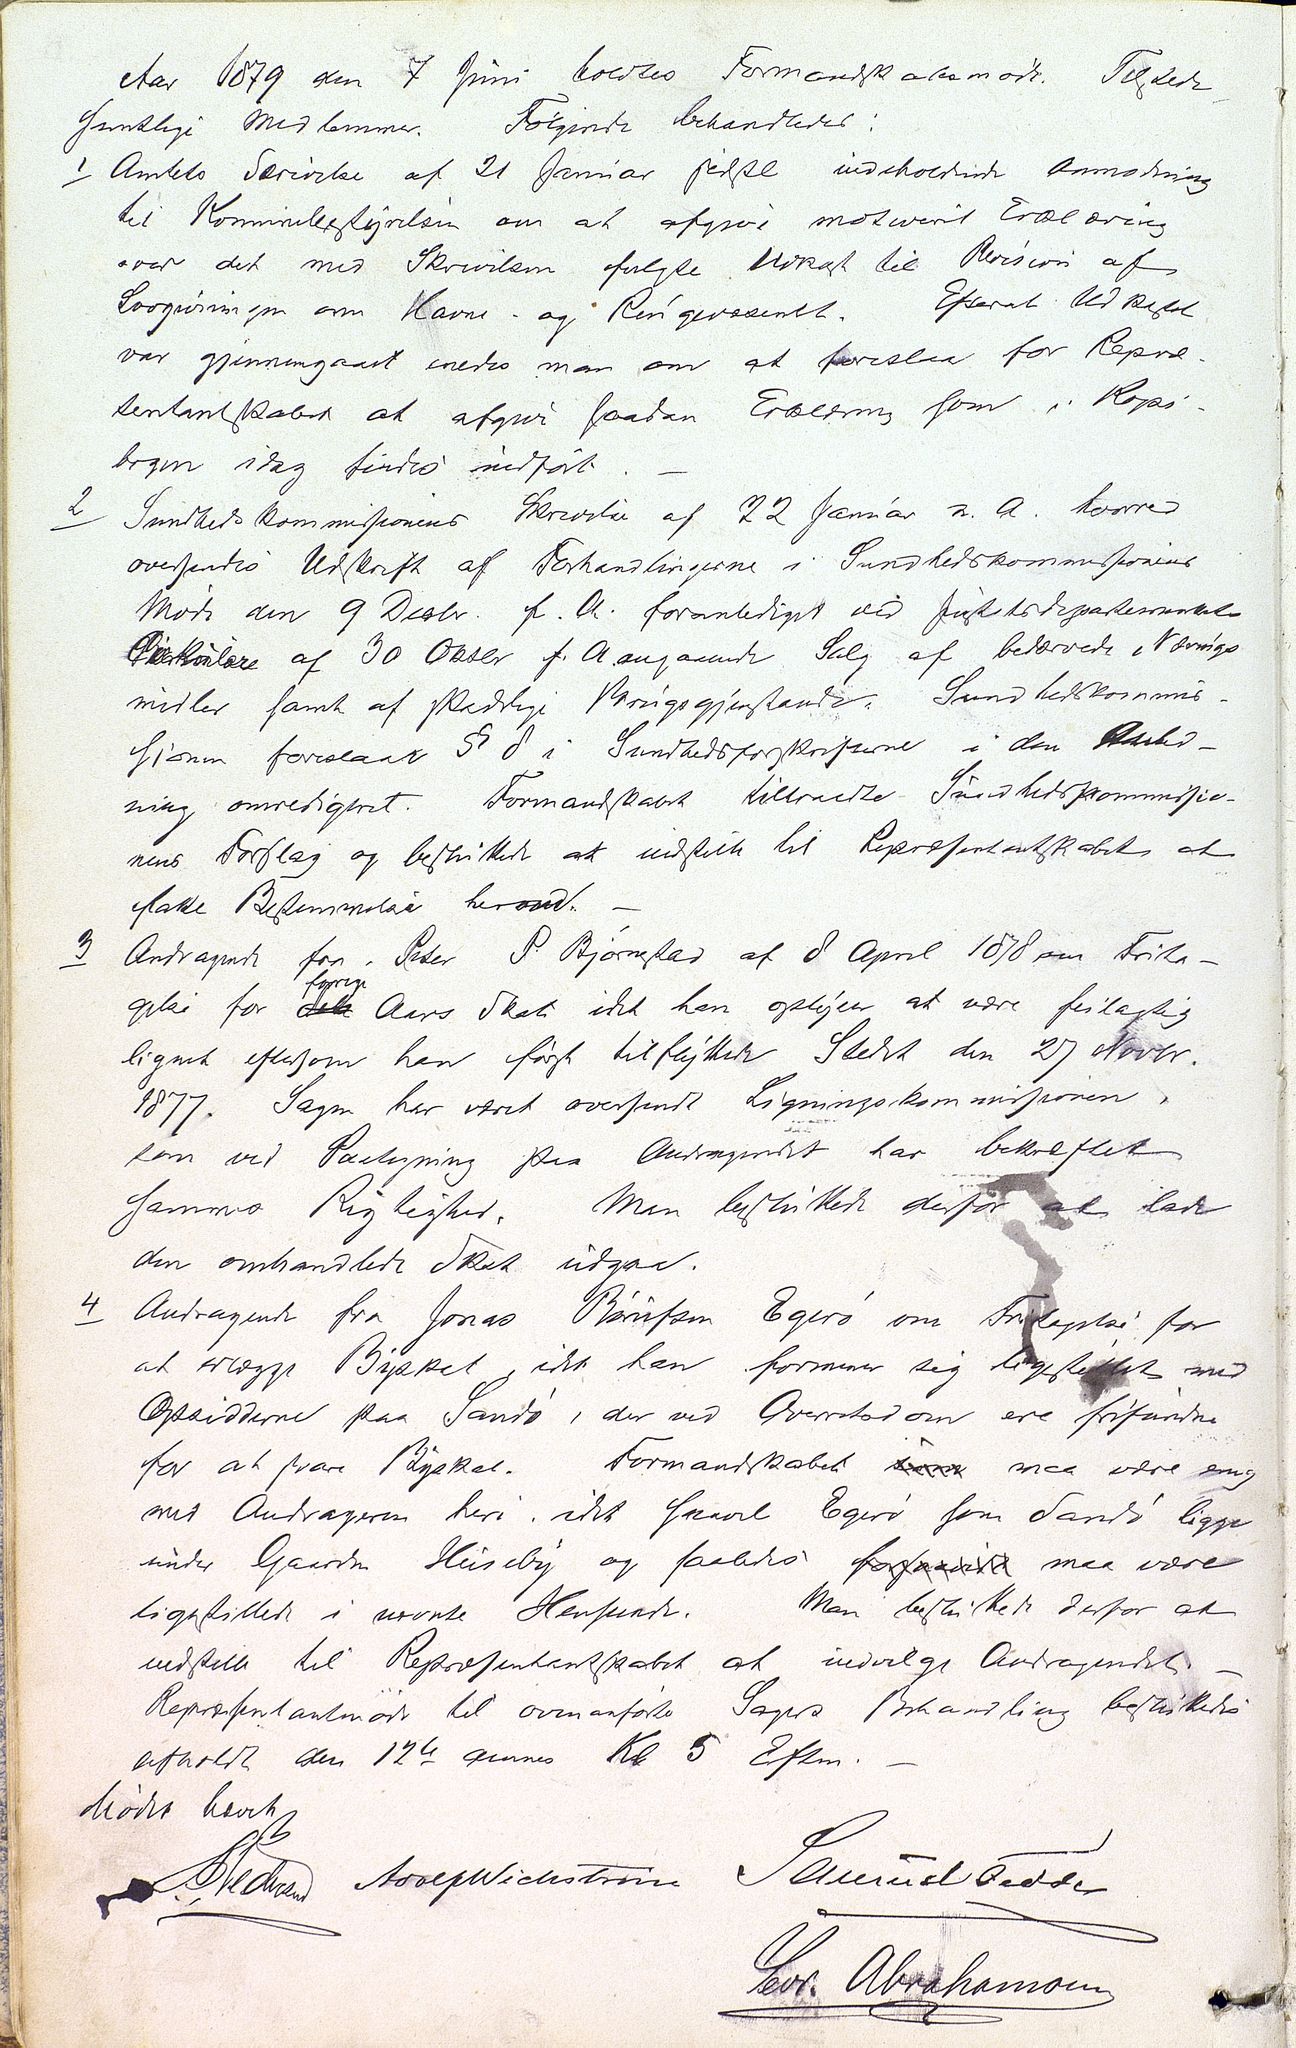 Aar 1879 den 7 Juni holdtes Formandskabsmöde. Tilstede
samtlige Medlemmer. Følgende behandledes:
1 Amtets Skrivelse af 21 Januar sidstl. indeholdende Anmodning
til Kommunebestyrelsen om at afgive motiveret Erklæring
over det med Skrivelsen fulgte Udkast til Revision af
Lovgivningen om Havne- og Ringevæsenet. Efterat Udkastet
var gjennemgaaet enedes man om at foreslaa for Repræ-
sentantskabet at afgive saadan Erklæring som i Kopi-
bogen idag findes indført. —
2 Sundhedskommissionens Skrivelse af 22 Januar d. A. hvorved
oversendes Udskrift af Forhandlingerne i Sundhedskommissionens
Möde den 9 Decbr. f. A. foranlediget ved Justitsdepartementets
Cirkulære af 30 Oktbr f. A. angaaende Salg af bedærvede Nærings
midler samt af skadelige Brugsgjenstande. Sundhedskommis-
sionen foreslaar § 8 i Sundhedsforskrifterne i den Anled-
ning omredigeret. Formandskabet tiltraadte Sundhedskommissio-
nens Forslag og besluttede at indstille til Repræsentantskabet at
fatte Bestemmelse herom. —
3 Andragende fra Peter P. Bjørnstad af 8 April 1878 om Frita-
gelse for forrige Aars Skat idet han oplyser at være feilagtig
lignet eftersom han først tilflyttede Stedet den 27 Novbr.
1877. Sagen har været oversendt Ligningskommissionen,
som ved Paategning paa Andragendet har bekræftet
sammes Rigtighed. Man besluttede derfor at lade
den omhandlede Skat udgaa.
4 Andragende fra Jonas Egerö om Fritagelse for
at erlægge Byskat, idet han formener sig ligestillet med
Opsidderne paa Sandö, der ved Overretsdom ere frifundne
for at svare Byskat. Formandskabet maa være enig
med Andrageren heri, idet saavel Egerö som Sandö ligge
under Gaarden Huseby og saaledes maa være
ligestillede i nævnte Henseende. Man besluttede derfor at
indstille til Repræsentantskabet at indvilge Andragendet. —
Repræsentantmöde til ovenanførte Sagers Behandling besluttedes
afholdt den 12te dennes Kl 5 Efterm. —
Mødet hævet
Adolf Wickstrøm Samuel Fedde
Abrahamsen